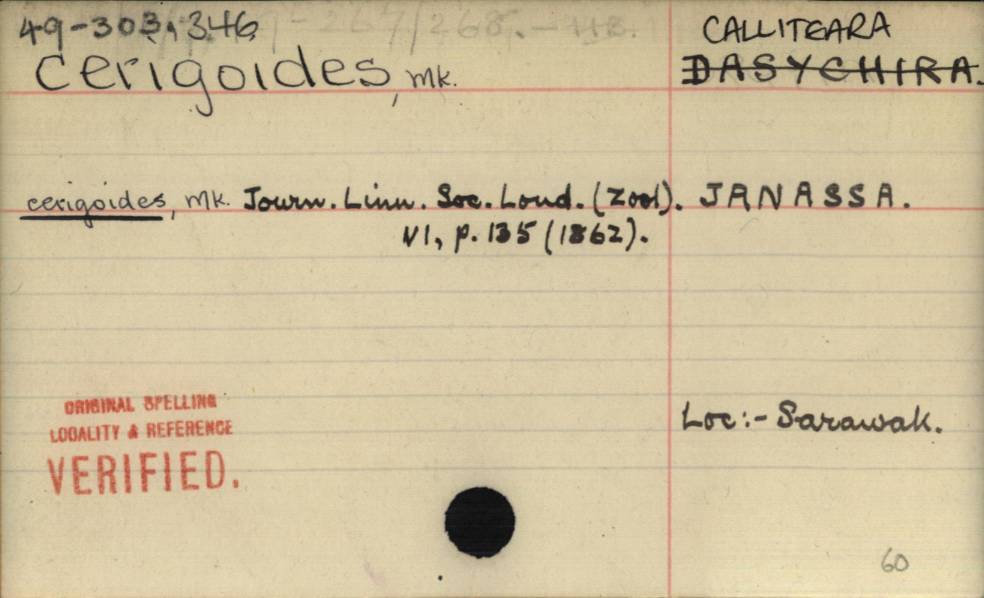 49-303, 346
CALLITEARA
cerigoides, mk. DASYCHIRA.
cerigoides, mk. Journ. Linn. Soc. Lond. (Zool). JANASSA.
VI, p. 135 (1862).
ORIGINAL SPELLING
LOCALITY & REFERENCE
VERIFIED.
Loc:- Sarawak.
60